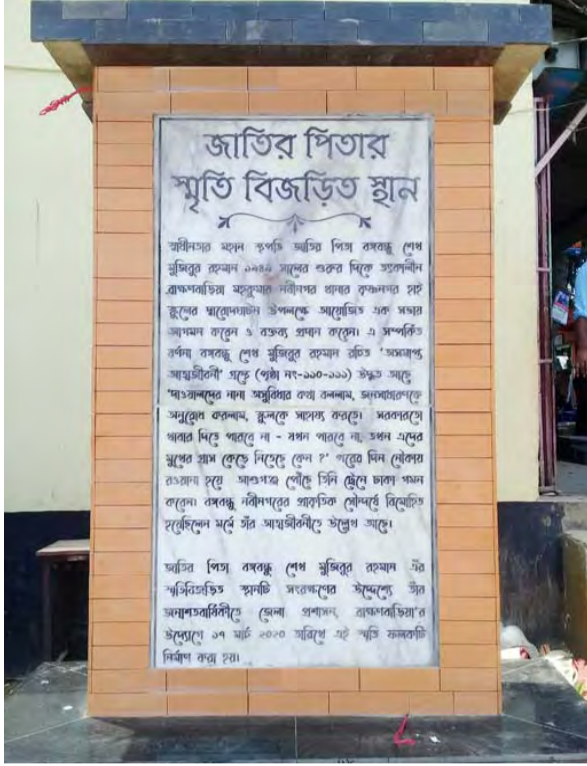 জাতির পিতার
স্মৃতি বিজড়িত স্থান
স্বাধীনতার মহান স্থপতি জাতির পিতা বঙ্গবন্ধু শেখ
মুজিবুর রহমান ১৯৪৯ সালের শুরুর দিকে তৎকালীন
ব্রাহ্মণবাড়িয়া মহকুমার নবীনগর থানার কৃষ্ণনগর হাই
স্কুলের দ্বারোদঘাটন উপলক্ষে আয়োজিত এক সভায়
আগমন করেন ও বক্তব্য প্রদান করেন। এ সম্পর্কিত
বর্ণনা বঙ্গবন্ধু শেখ মুজিবুর রহমান রচিত 'অসমাপ্ত
আত্মজীবনী' গ্রন্থে (পৃষ্ঠা নং-১১০-১১১) উদ্ধৃত আছে
'দাওয়ালদের নানা অসুবিধার কথা বললাম, জনসাধারণকে
অনুরোধ করলাম, স্কুলকে সাহায্য করতে। সরকারতো
খাবার দিতে পারবে না - যখন পারবে না, তখন এদের
মুখের গ্রাস কেড়ে নিতেছে কেন ?' পরের দিন নৌকায়
রওয়ানা হয়ে আশুগঞ্জ পৌঁছে তিনি ট্রেনে ঢাকা গমন
করেন। বঙ্গবন্ধু নবীনগরের প্রাকৃতিক সৌন্দর্যে বিমোহিত
হয়েছিলেন মর্মে তাঁর আত্মজীবনীতে উল্লেখ আছে।
জাতির পিতা বঙ্গবন্ধু শেখ মুজিবুর রহমান এঁর
স্মৃতিবিজড়িত স্থানটি সংরক্ষণের উদ্দেশ্যে তাঁর
জন্মশতবার্ষিকীতে জেলা প্রশাসন, ব্রাহ্মণবাড়িয়া'র
উদ্যোগে ১৭ মার্চ ২০২০ তারিখে এই স্মৃতি ফলকটি
নির্মাণ করা হয়।